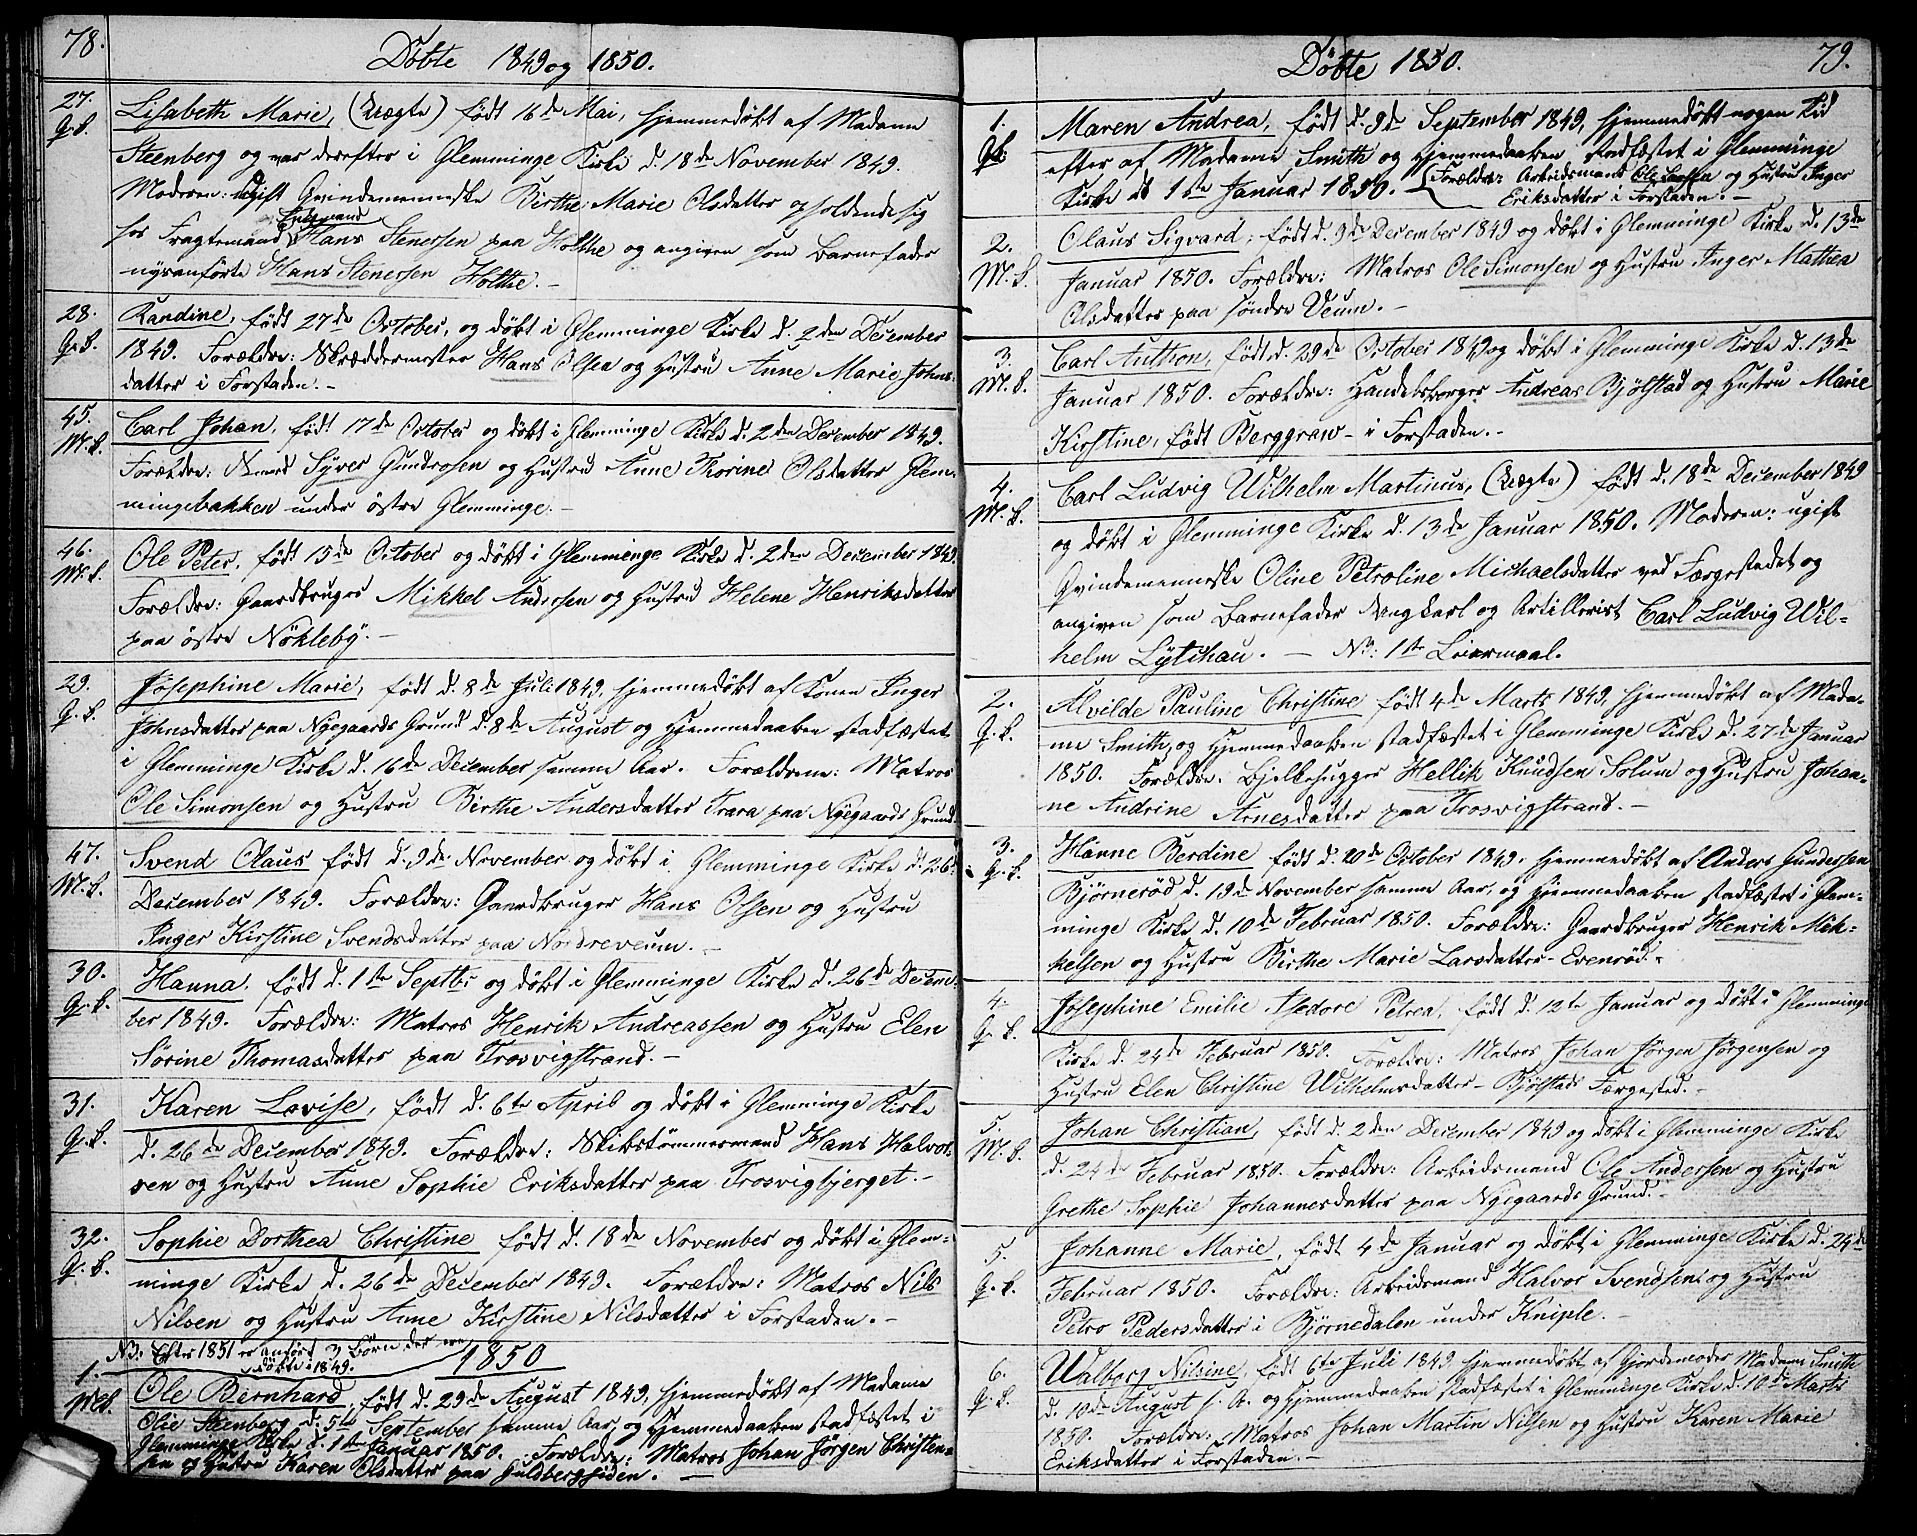 78.
Döbte 1849 og 1850.
27.
Q.k.
Lisabeth Marie, (Uægte) født 16de Mai, hjemmedöbt af Madame
Steenberg og var derefter i Glemminge Kirke d. 18de November 1849.
Moderen: ugift Qvindemenneske Birthe Marie Olsdatter opholdende sig
hos Fragtemand Enkemand Hans Stenersen paa Holthe og angiven som Barnefader
nysanförte Hans Stenersen Holthe.-
28.
Q.k.
Randine, født 27de October, og döbt i Glemminge Kirke d. 2den December
1849. Forældre: Skræddermester Hans Olsen og Hustru Anne Marie Johns-
datter i Forstaden.-
45.
M.k.
Carl Johan, født 17de October og döbt i Glemminge Kirke d. 2den December 1849.
Forældre: Syver Gundrosen og Hustru Anne Thorine Olsdatter Glem-
mingebakken under östre Glemminge.-
46.
M.k.
Ole Peter, født 15de October og döbt i Glemminge Kirke d. 2den December 1849.
Forældre: Gaardbruger Mikkel Andersen og Hustru Helene Henriksdatter
paa östre Nökleby.-
29.
Q.k.
Josephine Marie, født d. 8de Juli 1849, hjemmedöbt af Konen Inger
Johnsdatter paa Nygaards Grund d. 8de August og Hjemmedaaben stadfæstet
i Glemminge Kirke d. 16de December samme Aar. Forældrene: Matros
Ole Simonsen og Hustru Birthe Andersdatter Trara paa Nygaards Grund.
47.
M.k.
Svend Olaus født d. 9de November og döbt i Glemminge Kirke d. 26de
December 1849. Forældre: Gaardbruger Hans Olsen og Hustru
Inger Kirstine Svendsdatter paa Nordreveum.-
30.
Q.k.
Hanna, født d. 1ste Septbr og döbt i Glemminge Kirke d. 26de Decem-
ber 1849. Forældre: Matros Henrik Andreassen og Hustru Elen
Sörine Thomasdatter paa Trosvigstrand.-
31.
Q.k.
Karen Lovise, født d. 6te April og döbt i Glemminge Kirke
d. 26de December 1849. Forældre: Skibstömmermand Hans Halvor-
sen og Hustru Anne Sophie Eriksdatter paa Trosvigbjerget.-
32.
Q.k.
Sophie Dorthea Christine født d. 18de November og döbt i Glem-
minge Kirke d. 26de December 1849. Forældre: Matros Nils
Nilsen og Hustru Anne Kirstine Nilsdatter i Forstaden.-
NB. Efter 1851 er anfört 3 Börn der ere
döbte i 1849.
1850
1.
M.k.
Ole Bernhard, født d. 29de August 1849, hjemmedöbt af Madame
Olie Steenberg d. 5te September samme Aar, og Hjemmedaaben stadfæstet i
Glemminge Kirke d. 1ste Januar 1850. Forældre: Matros Johan Jörgen Christen-
sen og Hustru Karen Olsdatter paa Guldbergsiden.-
79.
Döbte 1850.
1.
Q.k.
Maren Andrea, født d. 9de September 1849, hjemmedöbt nogen Tid
efter af Madame Smith og Hjemmedaaben stadfæstet i Glemminge
Kirke d. 1ste Januar 1850. Forældre: Arbeidsmand Ole Larsen og Hustru Inger
Eriksdatter i Forstaden.-
2.
M.k.
Olaus Sigvard, født d. 9de December 1849 og döbt i Glemminge Kirke d. 13de
Januar 1850. Forældre: Matros Ole Simonsen og Hustru Inger Mathea
Olsdatter paa söndre Veum.-
3.
M.k.
Carl Anthon, født d. 29de October 1849 og döbt i Glemminge Kirke d. 13de
Januar 1850. Forældre: Handelsborger Andreas Bjölstad og Hustru Marie
Kirstine, født Berggraw - i Forstaden.-
4.
M.k.
Carl Ludvig Wilhelm Martinus, (Uægte) født d. 18de December 1849
og döbt i Glemminge Kirke d. 13de Januar 1850. Moderen: ugift
Qvindemenneske Oline Petroline Michaelsdatter ved Færgestedet og
angiven som Barnefader Ungkarl og Artillerist Carl Ludvig Wil-
helm Lytschau. - No: 1ste Leiermaal.
2.
Q.k.
Alvilde Pauline Christine født 4de Marts 1849, hjemmedöbt af Mada-
me Smith, og Hjemmedaaben stadfæstet i Glemminge Kirke d. 27de Januar
1850. Forældre: Bjelkehugger Hellik Knudsen Solum og Hustru Johan-
ne Andrine Arnesdatter paa Trosvigstrand.-
3.
Q.k.
Hanne Berdine født d. 20de October 1849. hjemmedöbt af Anders Gundersen
Björneröd d. 19de November samme Aar, og Hjemmedaaben stadfæstet i Glem-
minge Kirke d. 10de Februar 1850. Forældre: Gaardbruger Henrik Mik-
kelsen og Hustru Birthe Marie Larsdatter - Evenröd.-
4.
Q.k.
Josephine Emilie Isedore Petrea, født d. 12te Januar og döbt i Glemminge
Kirke d. 24de Februar 1850. Forældre: Matros Johan Jörgen Jörgensen og
Hustru Elen Christine Wilhelmsdatter - Bjölstads Færgested.-
5.
M.k.
Johan Christian, født d. 2den December 1849 og döbt i Glemminge Kirke
d. 24de Februar 1850. Forældre: Arbeidsmand Ole Andersen og Hustru
Grethe Sophie Johannesdatter paa Nygaards Grund.-
5.
Q.k.
Johanne Marie, født 4de Januar og döbt i Glemminge Kirke d. 24de
Februar 1850. Forældre: Arbeidsmand Halvor Svendsen og Hustru
Petro Pedersdatter i Björnedalen under Kniple.-
6.
Q.k.
Walborg Nilsine, født 6te Juli 1849 hjemmedöbt af Gjordemoder Madam Smith
d. 10de August s. A. og Hjemmedaaben stadfæstet i Glemminge Kirke d. 10de Marts
1850. Forældre: Matros Johan Martin Nilsen og Hustru Karen Marie
Eriksdatter i Forstaden.-